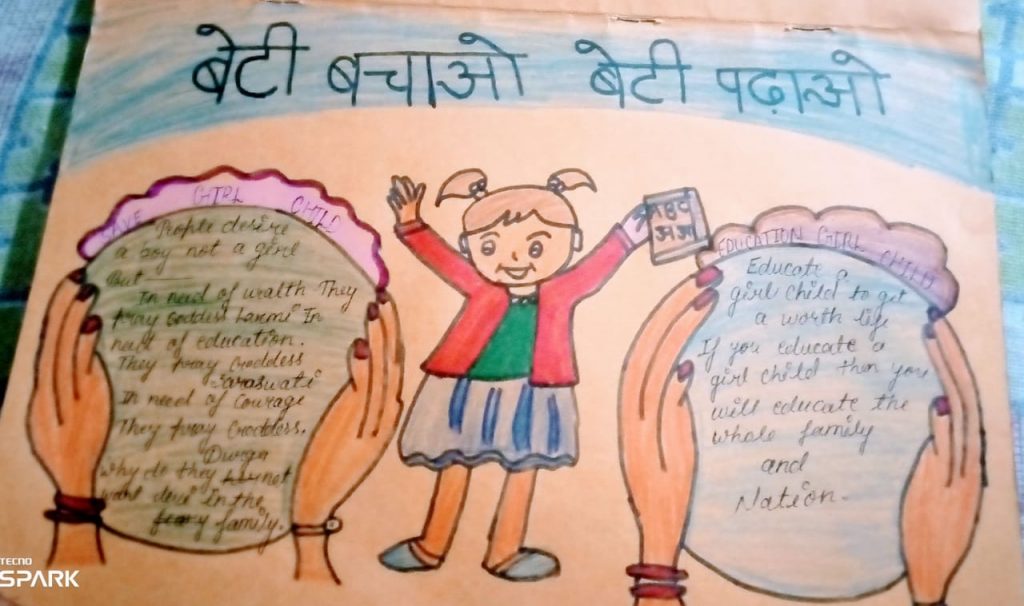 बेटी बचाओ बेटी पढ़ाओ
SAVE GIRL CHILD
People desire
a boy not a girl
But
In need of wealth They
Pray Goddess Laxmi In
need of education.
They Pray Goddess
Saraswati
In need of Courage
They Pray Goddess.
Durga
why do they not
want devi In the
family.
अआ
EDUCATION GIRL CHILD
Educate a
girl child to get
a worth life
If you educate a
girl child then you
will educate the
whole family
and
Nation.
TECNO
SPARK